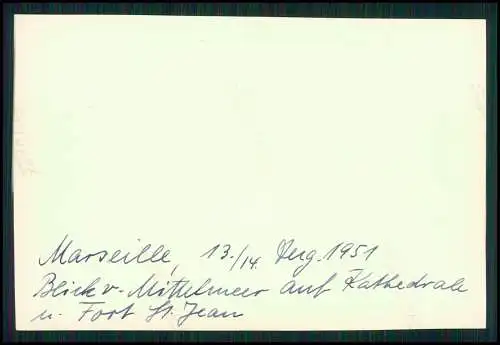 Marseille, 13./14. Aug. 1951
Blick v. Mittelmeer auf Kathedrale
u. Fort St. Jean